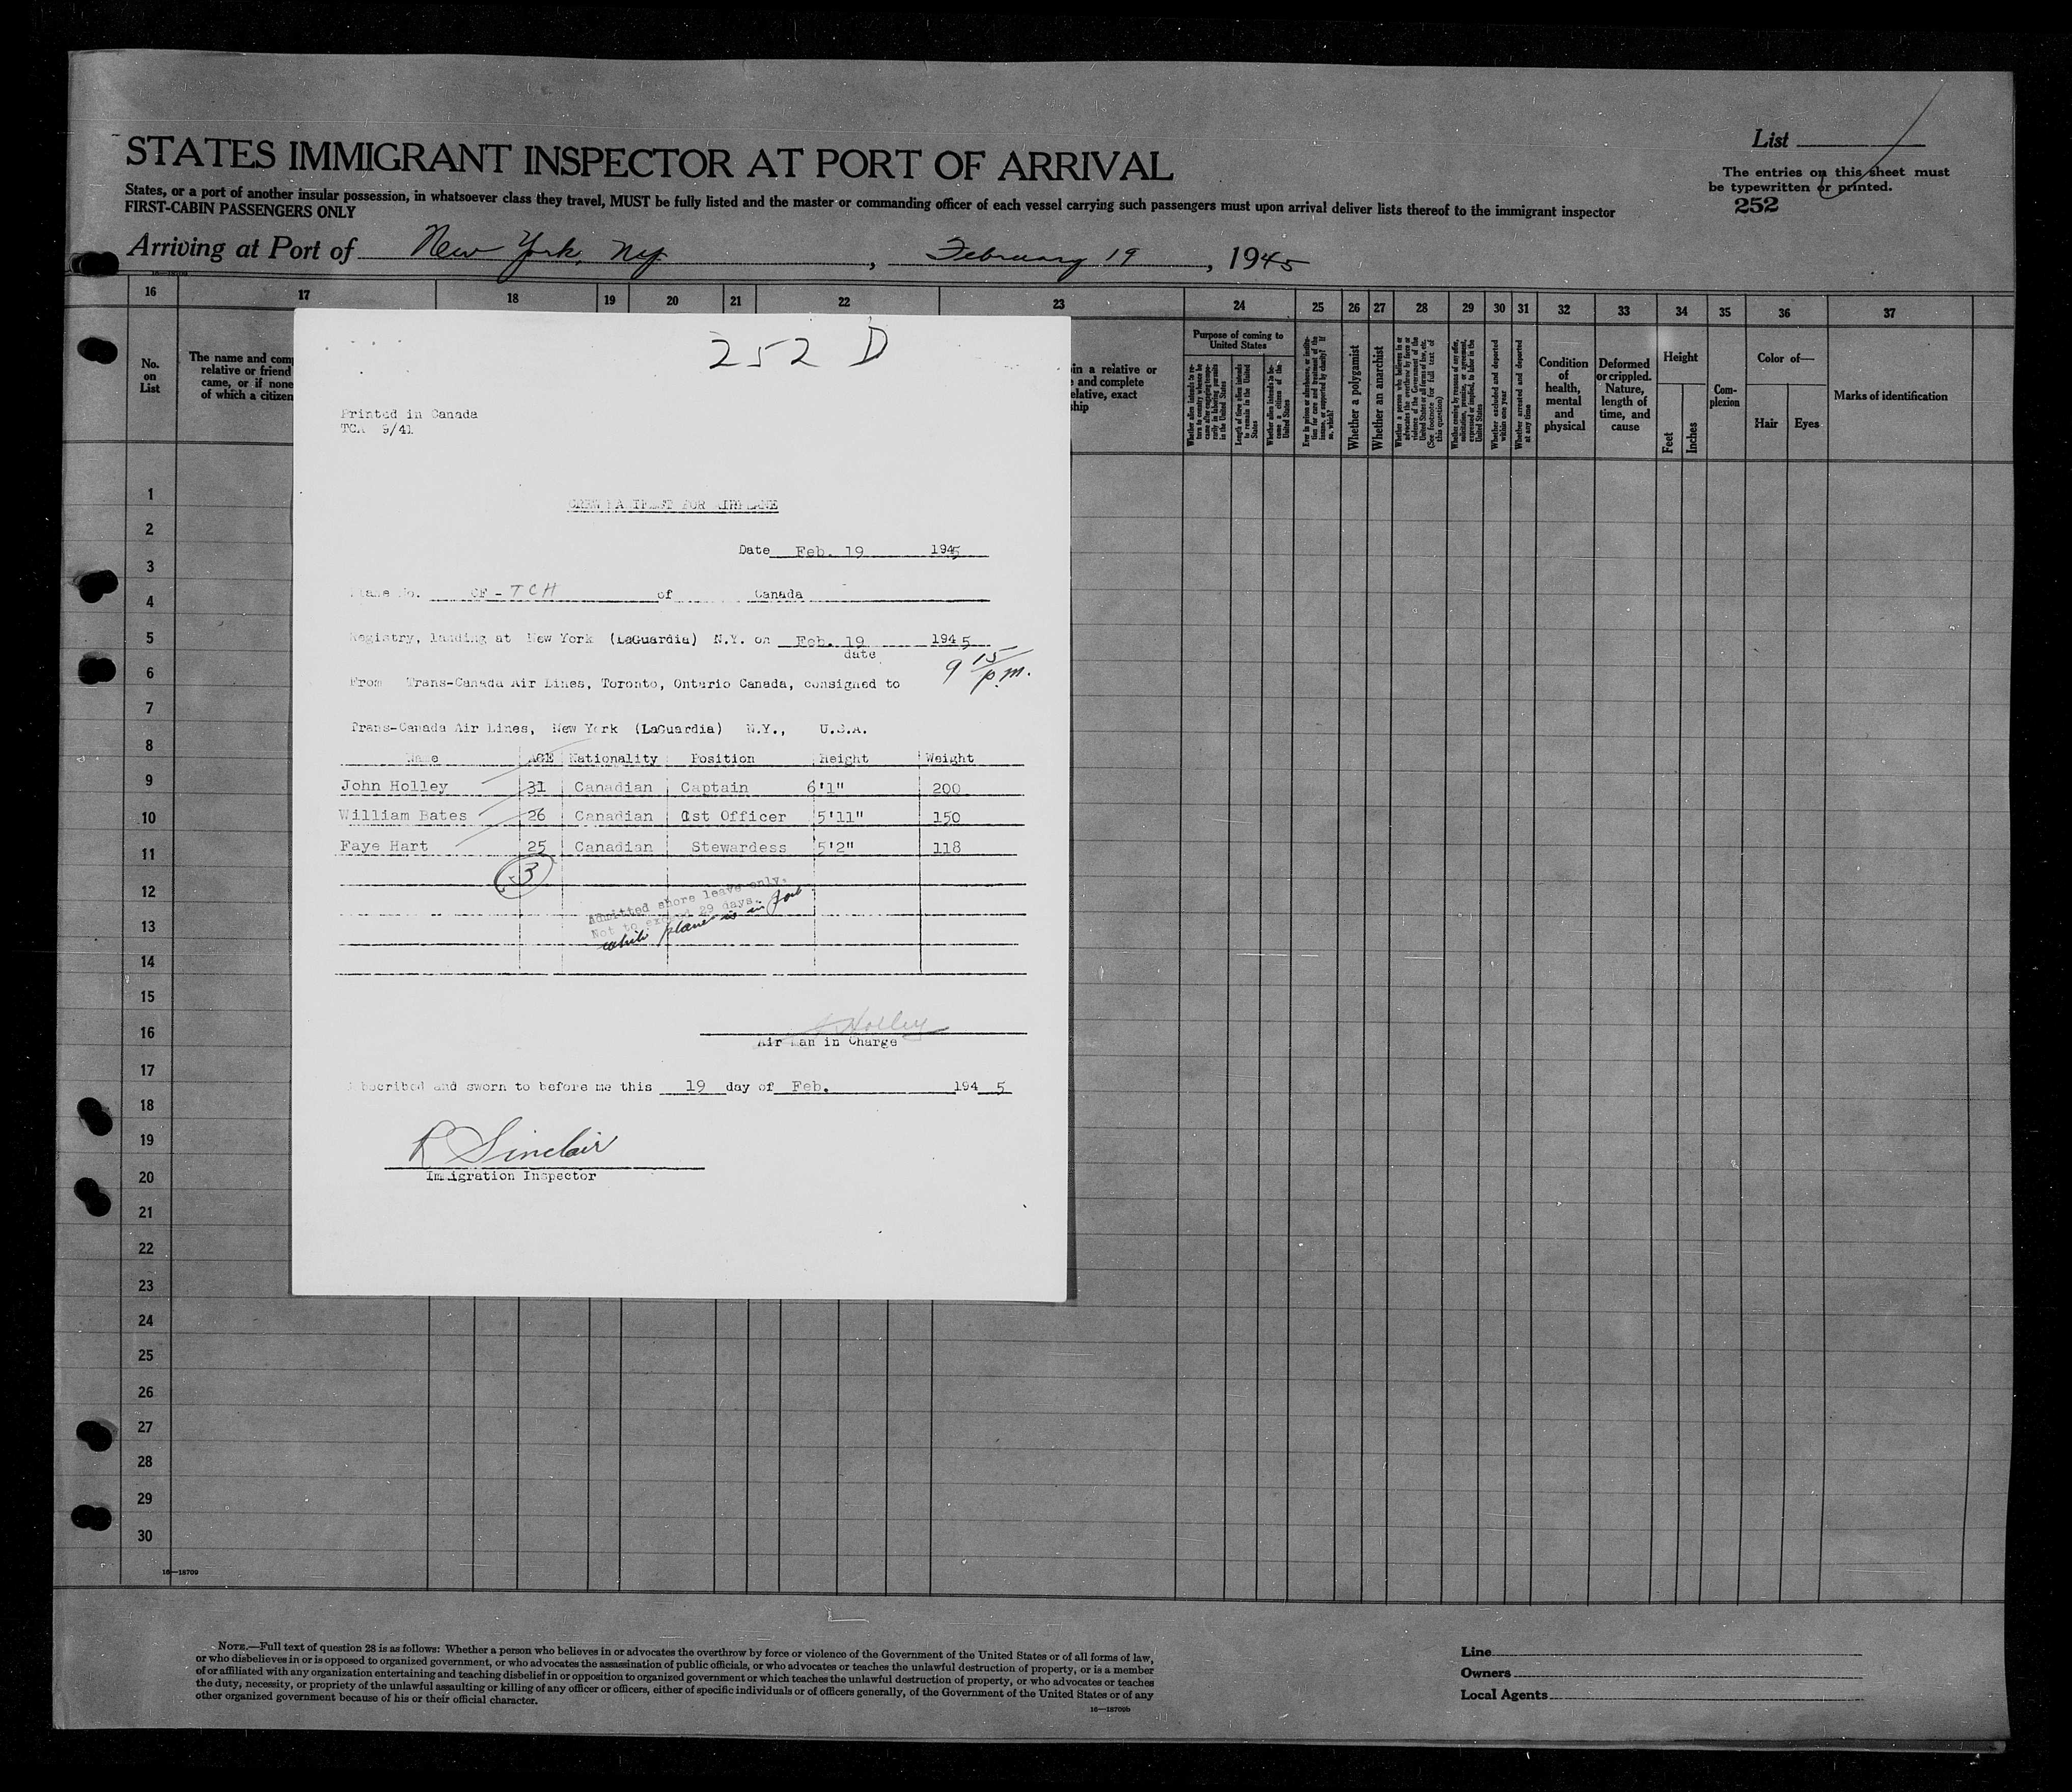 STATES IMMIGRANT INSPECTOR AT PORT OF ARRIVAL
States, or a port of another insular possession, in whatsoever class they travel, MUST be fully listed and the master or commanding officer of each vessel carrying such passengers must upon arrival deliver lists thereof to the immigrant inspector
FIRST-CABIN PASSENGERS ONLY
List
The entries on this sheet must
be typewritten or printed.
252
Arriving at Port of New York, NY, February 19, 1945
16 17 18 19 20 21 22 23 24 25 26 27 28 29 30 31 32 33 34 35 36 37
No.
on
List
The name and comp
relative or friend
came, or if none
of which a citizen
in a relative or
and complete
elative, exact
ship
Purpose of coming to
United States
Whether a polygamist
Whether an anarchist
Whether excluded and deported within one year
Whether arrested and deported at any time
Condition
of
health,
mental
and
physical
Deformed
or crippled.
Nature,
length of
time, and
cause
Height
Feet
Inches
Com-
plexion
Color of—
Hair Eyes
Marks of identification
252 D
Printed in Canada
TCA 5/41
CREW MANIFEST FOR AIRPLANE
Date Feb. 19 1945
Plane No. CF-TCH of Canada
Registry, landing at New York (LaGuardia) N.Y. on Feb. 19 1945
date
9 15/p.m.
From Trans-Canada Air Lines, Toronto, Ontario Canada, consigned to
Trans-Canada Air Lines, New York (LaGuardia) N.Y., U.S.A.
Name AGE Nationality Position Height Weight
John Holley 31 Canadian Captain 6'1" 200
William Bates 26 Canadian 1st Officer 5'11" 150
Faye Hart 25 Canadian Stewardess 5'2" 118
3
Admitted shore leave only.
Not to exceed 29 days.
while plane is in Port
Holley
Air Man in Charge
Subscribed and sworn to before me this 19 day of Feb. 1945
R Sinclair
Immigration Inspector
1
2
3
4
5
6
7
8
9
10
11
12
13
14
15
16
17
18
19
20
21
22
23
24
25
26
27
28
29
30
16—18709
NOTE.—Full text of question 28 is as follows: Whether a person who believes in or advocates the overthrow by force or violence of the Government of the United States or of all forms of law,
or who disbelieves in or is opposed to organized government, or who advocates the assassination of public officials, or who advocates or teaches the unlawful destruction of property, or is a member
of or affiliated with any organization entertaining and teaching disbelief in or opposition to organized government or which teaches the unlawful destruction of property, or who advocates or teaches
the duty, necessity, or propriety of the unlawful assaulting or killing of any officer or officers, either of specific individuals or of officers generally, of the Government of the United States or of any
other organized government because of his or their official character.
16—18709b
Line
Owners
Local Agents